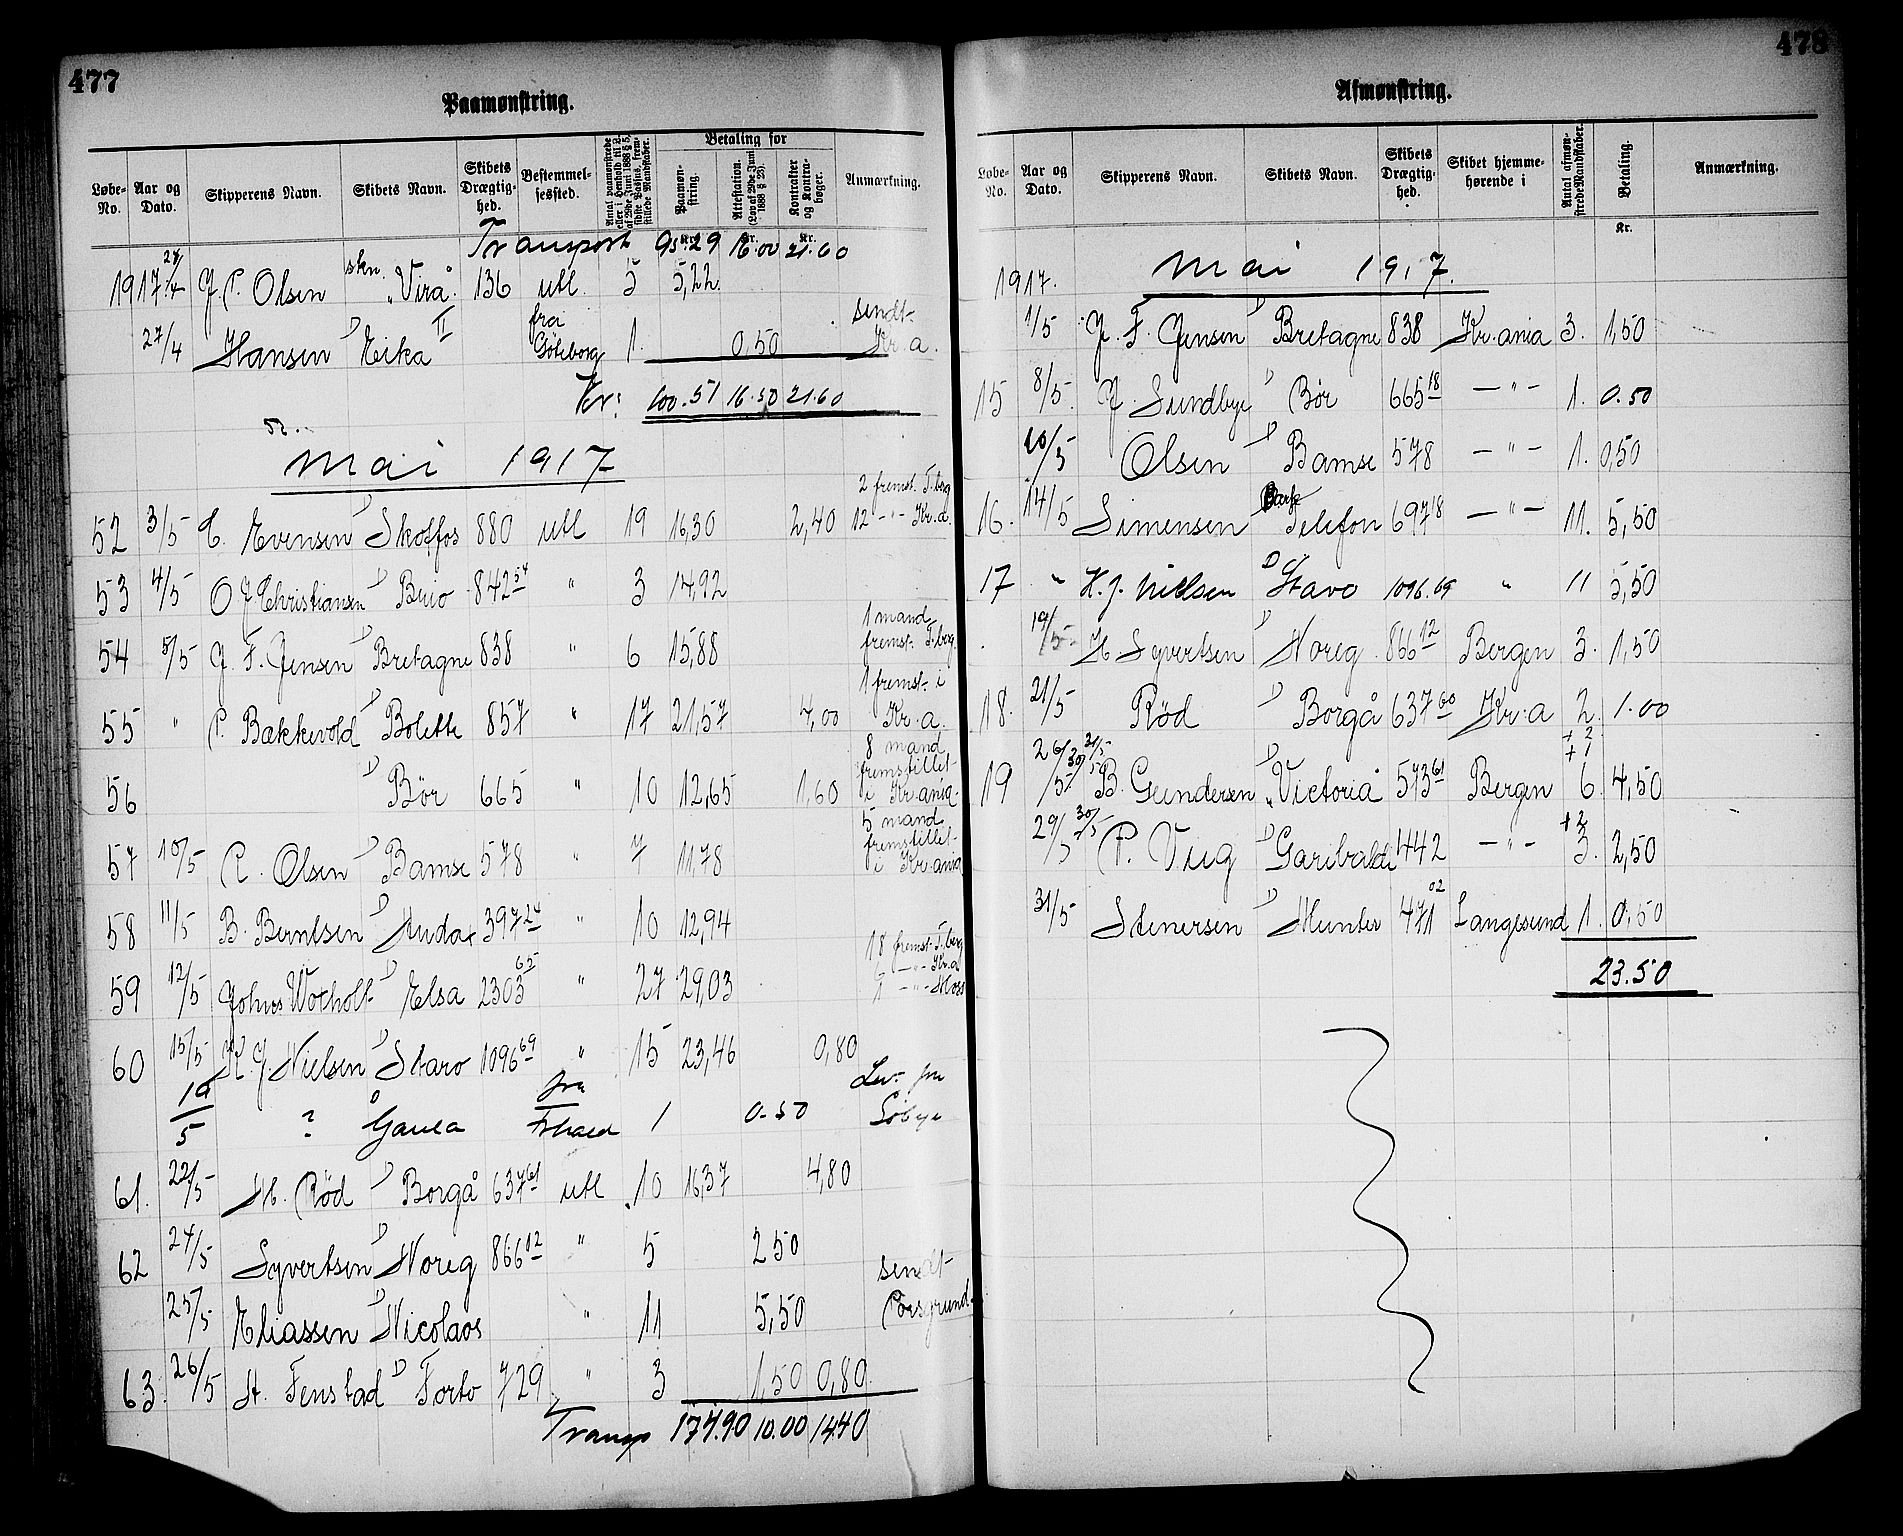 477
Paamønstring.
Løbe-No. Aar og Dato. Skipperens Navn. Skibets Navn. Skibets Drægtig-hed. Bestemmel-sessted. Betaling for Paamøn-string. Attestation. (Lov af 29de Juni 1888 § 23). Kontrakter og Kontra-bøger. Anmærkning.
Transport 95.29 16.00 21.60
1917 27/4 J. P. Olsen skn. "Virå" 136 utl. 5 5,22
27/4 Hansen D Eika II fra Göteborg 1. 0,50 sendt Kr.a.
Kr: 100.51 16.50 21.60
Mai 1917
52 3/5 C. Evensen D Skotfos 880 utl 19 16,30 2,40 2 fremst. T.berg 12 -"- Kr.a.
53 4/5 O J Christiansen D Buio 842 54 " 3 14,92
54 5/5 J. F. Jensen D Bretagne 838 " 6 15,88 1 mand fremst. T.berg.
55 " P. Bækkevold D Bolette 857 " 17 21,57 4,00 1 fremst. i Kr.a.
56 D Bør 665 " 10 12,65 1,60 8 mand fremstillet i Kr.ania.
57 10/5 R. Olsen D Bamse 578 " 7 11,78 5 mand fremstillet i Kr.ania
58 11/5 B. Berntsen D Audax 397 24 " 10 12,94
59 12/5 Johns Wotholt D Elsa 2303 65 " 27 29,03 18 fremst. T.berg 7 -"- Kr.a 1 -"- Moss
60 15/5 K. J. Nielsen D Stavo 1096 69 " 15 23,46 0,80
19/5 ? Gaula fra F.hald 1 0.50 Lev. fru Söbye
61. 22/5 H. Röd D Borgå 637 61 utl 10 16,37 4,80
62 24/5 Syvertsen D Noreg 866 12 " 5 2 50
25/5 Eliassen D Nicolaos " 11 5,50 sendt Porsgrund.
63. 26/5 St. Fenstad D Forto 729 " 3 1,50 0,80
Transp 174.90 10.00 14.40
478
Afmønstring.
Løbe-No. Aar og Dato. Skipperens Navn. Skibets Navn. Skibets Drægtig-hed. Skibet hjemme-hørende i Antal afmøn-strede Mandskaber. Betaling. Anmærkning.
Kr.
1917. Mai 1917.
1/5 J. F. Jensen D Bretagne 838 Kr.ania 3. 1,50
15 8/5 J. Sundbye D Bør 665 18 -"- 1. 0.50
10/5 Olsen D Bamse 578 -"- 1. 0,50
16. 14/5 Simensen Bark Telefon 697 18 -"- 11. 5,50
17 " K. J. Nielsen D Stavo 1096.69 " 11 5,50
19/5 H Syvertsen D Noreg 866 12 Bergen 3. 1,50
18. 21/5 Röd D Borgå 637 60 Kr.a 2. 1.00
19 26/5 30/5 31/5 B. Gundersen D "Victoria" 573 61 Bergen 6 + 1 + 2 4,50
29/5 30/5 P. Vug D Garibaldi 442 -"- 3. + 2 2,50
31/5 Stenersen D Munter 471 02 Langesund 1. 0,50
23.50